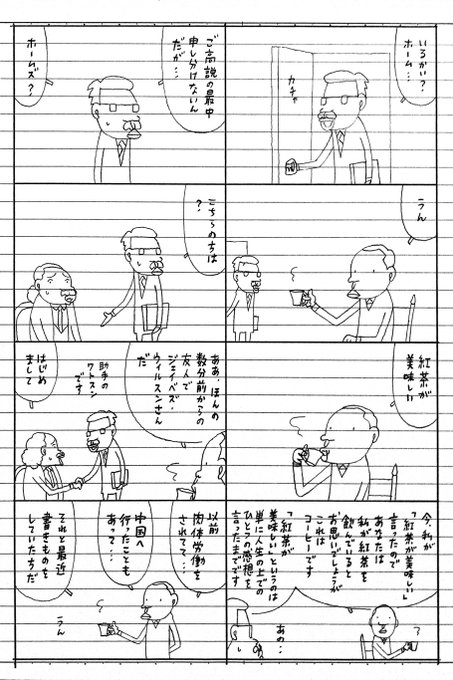 いるかい?
ホーム…
カチャ
うん
紅茶が
美味しい
今、私が
「紅茶が美味しい」
言ったので
あなたは
私が紅茶を
飲んでいると
お思いでしょうが
これは
コーヒーです
「紅茶が
美味しい」というのは
単に人生の上での
ひとつの感想を
言ったまでです
?
あの…
ご高説の最中
申し分けないん
だが…
ホームズ?
こちらの方は
?
ああ、ほんの
数分前からの
友人で
ジェイベズ・
ウィルスンさん
だ
助手の
ワトスン
です
はじめ
まして
以前
肉体労働を
されてて…
中国へ
行ったことも
あって…
それと最近
書きものを
していた方だ
うん